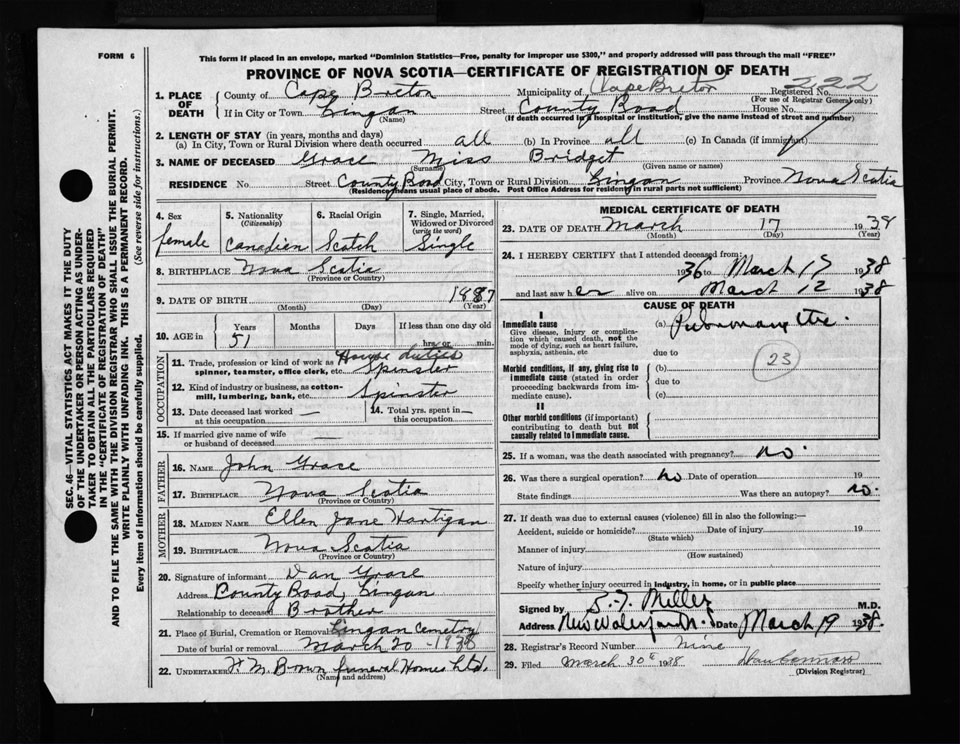 FORM 6
This form if placed in an envelope, marked "Dominion Statistics—Free, penalty for improper use $300," and properly addressed will pass through the mail "FREE"
PROVINCE OF NOVA SCOTIA—CERTIFICATE OF REGISTRATION OF DEATH
222
1. PLACE OF DEATH
County of Cape Breton Municipality of Cape Breton Registered No.
(For use of Registrar General only)
If in City or Town Lingan Street County Road House No.
(Name) (If death occurred in a hospital or institution, give the name instead of street and number)
2. LENGTH OF STAY (in years, months and days)
(a) In City, Town or Rural Division where death occurred all (b) In Province all (c) In Canada (if immigrant)
3. NAME OF DECEASED Grace Miss Bridget
(Surname) (Given name or names)
RESIDENCE No. Street County Road City, Town or Rural Division Lingan Province Nova Scotia
(Residence means usual place of abode. Post Office Address for residents in rural parts not sufficient)
4. Sex female
5. Nationality (Citizenship) Canadien
6. Racial Origin Scotch
7. Single, Married, Widowed or Divorced (write the word) Single
8. BIRTHPLACE Nova Scotia
(Province or Country)
9. DATE OF BIRTH 1887
(Month) (Day) (Year)
10. AGE in Years Months Days If less than one day old
51 hrs. or min.
OCCUPATION
11. Trade, profession or kind of work as spinner, teamster, office clerk, etc. House duties Spinster
12. Kind of industry or business, as cotton-mill, lumbering, bank, etc. Spinster
13. Date deceased last worked at this occupation —
14. Total yrs. spent in this occupation —
15. If married give name of wife or husband of deceased —
FATHER
16. NAME John Grace
17. BIRTHPLACE Nova Scotia
(Province or Country)
MOTHER
18. MAIDEN NAME Ellen Jane Hartigan
19. BIRTHPLACE Nova Scotia
(Province or Country)
20. Signature of informant Dan Grace
Address County Road, Lingan
Relationship to deceased Brother
21. Place of Burial, Cremation or Removal Lingan Cemetry
Date of burial or removal March 20 - 1938
22. UNDERTAKER F. M. Brown funeral Homes Ltd.
(Name and address)
MEDICAL CERTIFICATE OF DEATH
23. DATE OF DEATH March 17 1938
(Month) (Day) (Year)
24. I HEREBY CERTIFY that I attended deceased from:
1936 to March 17 1938
and last saw her alive on March 12 1938
CAUSE OF DEATH
I
Immediate cause
Give disease, injury or complication which caused death, not the mode of dying, such as heart failure, asphyxia, asthenia, etc
(a)
due to
23
Morbid conditions, if any, giving rise to immediate cause (stated in order proceeding backwards from immediate cause).
(b)
due to
(c)
II
Other morbid conditions (important) contributing to death but not causally related to immediate cause.
25. If a woman, was the death associated with pregnancy? no.
26. Was there a surgical operation? no Date of operation 19
State findings Was there an autopsy? no.
27. If death was due to external causes (violence) fill in also the following:—
Accident, suicide or homicide? Date of injury 19
(State which)
Manner of injury
(How sustained)
Nature of injury
Specify whether injury occurred in industry, in home, or in public place
Signed by S. J. Miller M.D.
Address New Waterford N.S. Date March 19 1938.
28. Registrar's Record Number Nine
29. Filed March 30th 1938
(Division Registrar)
SEC. 46—VITAL STATISTICS ACT MAKES IT THE DUTY
OF THE UNDERTAKER OR PERSON ACTING AS UNDER-
TAKER TO OBTAIN ALL THE PARTICULARS REQUIRED
IN THE "CERTIFICATE OF REGISTRATION OF DEATH"
AND TO FILE THE SAME WITH THE DIVISION REGISTRAR WHO SHALL ISSUE THE BURIAL PERMIT.
WRITE PLAINLY WITH UNFADING INK. THIS IS A PERMANENT RECORD.
Every item of information should be carefully supplied. (See reverse side for instructions.)